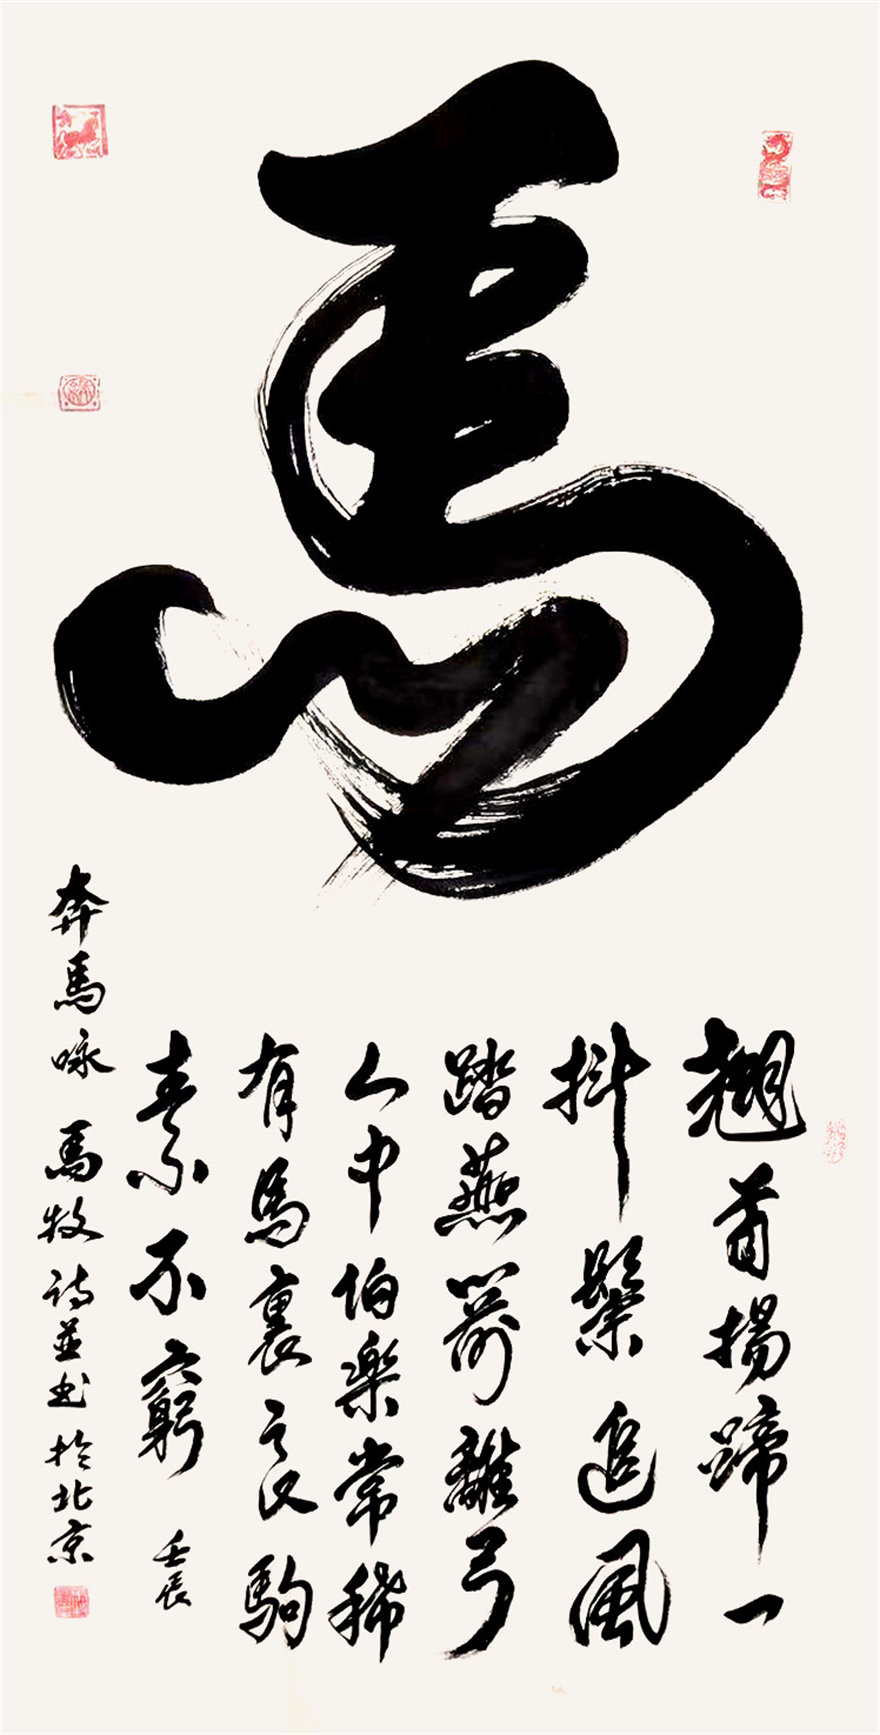 馬
翹首揚蹄一
抖鬃追風
踏燕箭離弓
人中伯樂常稀
有馬裏良駒
素不窮 壬辰
奔馬咏 馬牧诗並书於北京